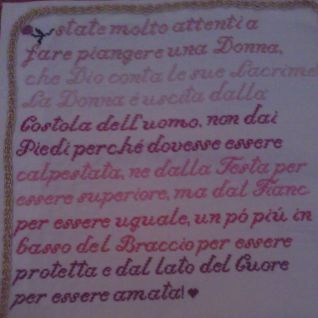 state molto attenti a
fare piangere una Donna,
che Dio conta le sue Lacrime
La Donna é uscita dalla
Costola dell'uomo, non dai
Piedi perché dovesse essere
calpestata, ne dalla Testa per
essere superiore, ma dal Fianc
per essere uguale, un pó piú in
basso del Braccio per essere
protetta e dal lato del Cuore
per essere amata!♥